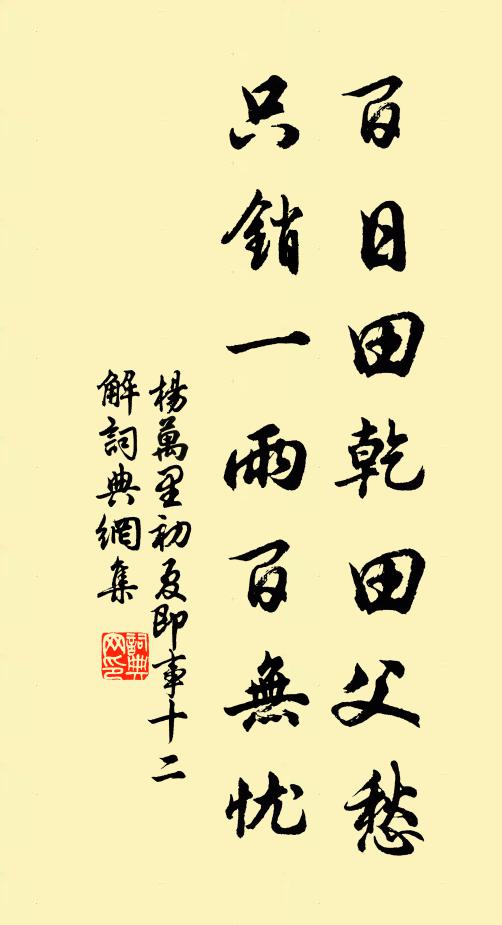 百日田乾田父愁
只銷一雨百無忧
楊萬里初夏即事十二
解詞典網集
詞典
网印